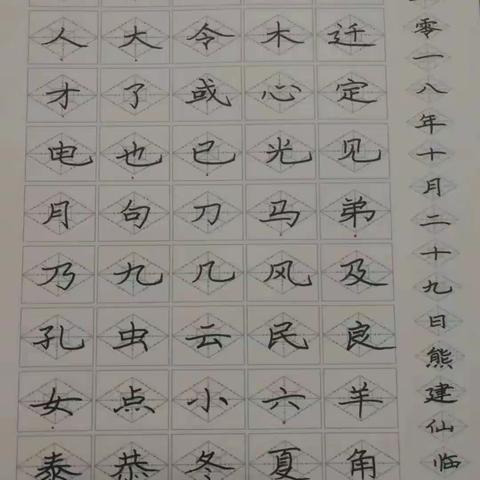 人大令木迁
才了或心定
电也已光见
月句刀马弟
乃九几风及
孔虫云民良
女点小六羊
泰恭冬夏角
零一八年十月二十九日熊建仙临